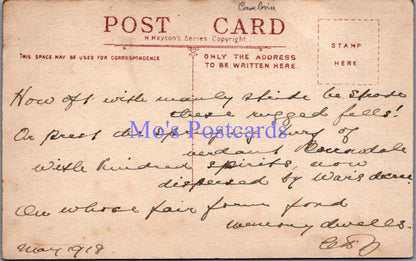 Cumbria
POST CARD
H Mayson's Series. Copyright.
THIS SPACE MAY BE USED FOR CORRESPONDENCE
ONLY THE ADDRESS
TO BE WRITTEN HERE.
STAMP
HERE.
How oft with manly stride he strode
these rugged fells!
Or press'd the springy turf of
verdant
With kindred spirits, now
dispersed by War's decree
On whose fair form fond
memory dwells.
May 1918
Mo's Postcards